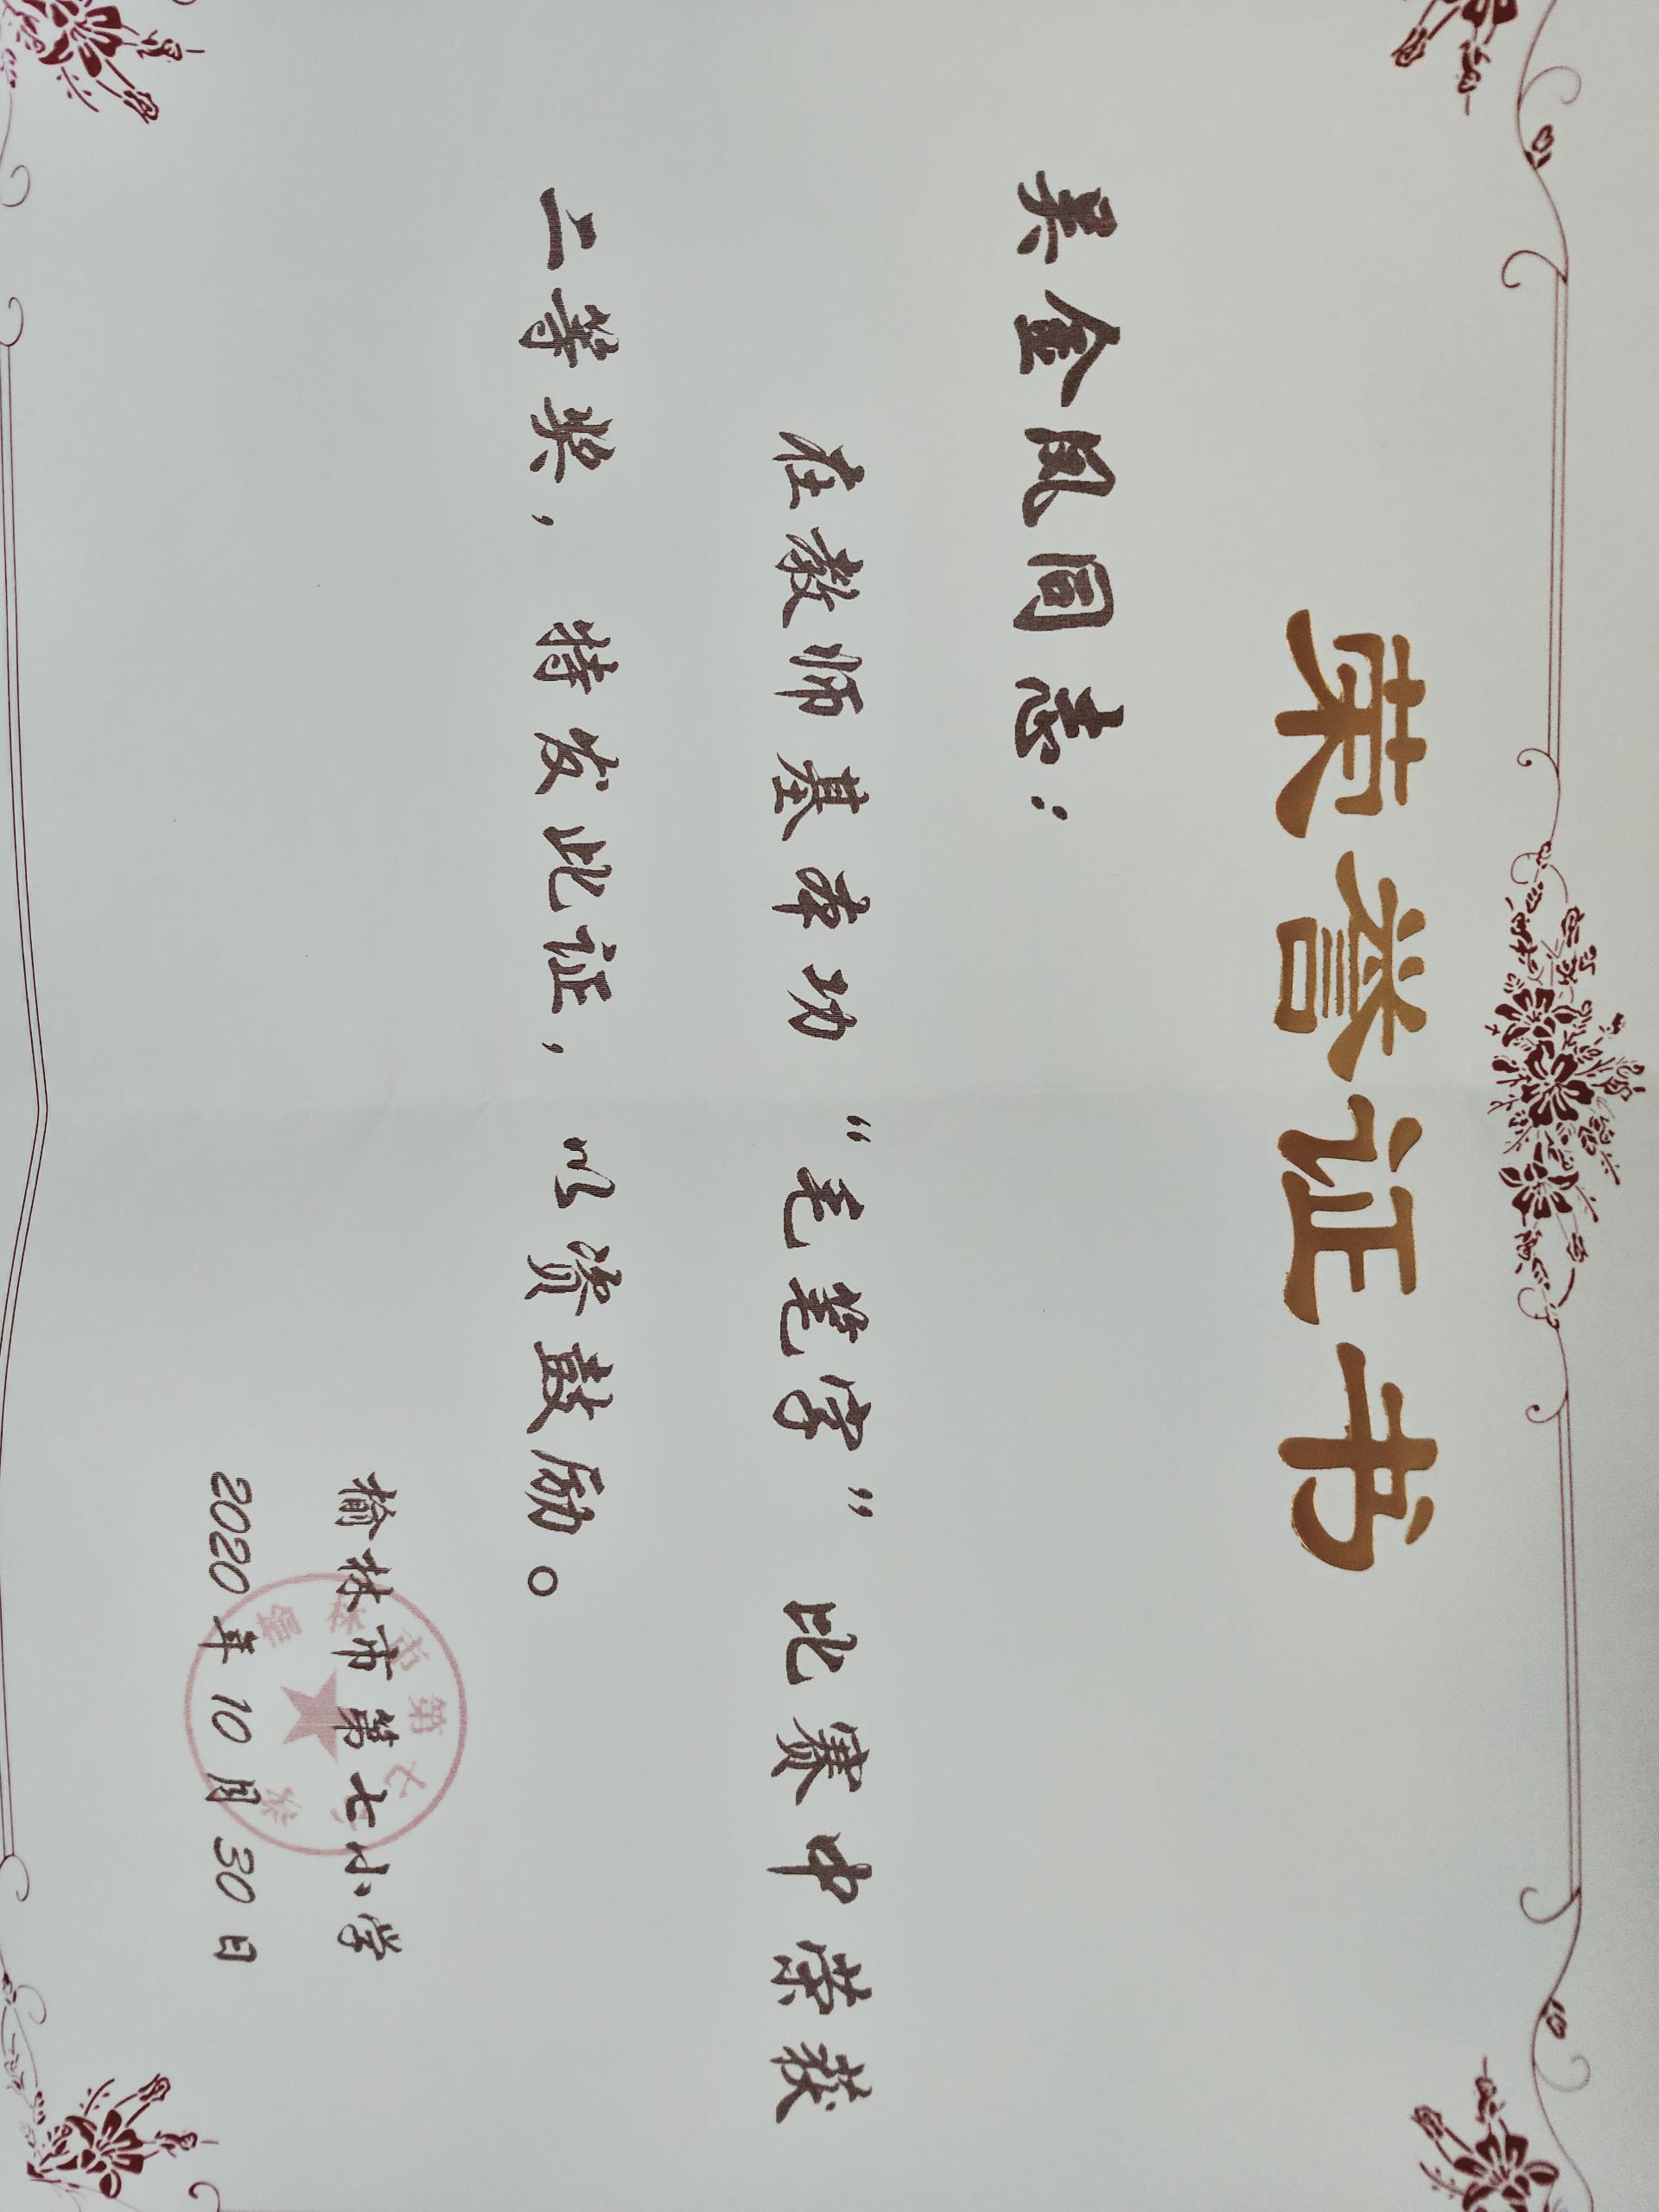 荣誉证书
吴金凤同志：
在教师基本功“毛笔字”比赛中荣获
二等奖，特发此证，以资鼓励。
榆林市第七小学
2020年10月30日